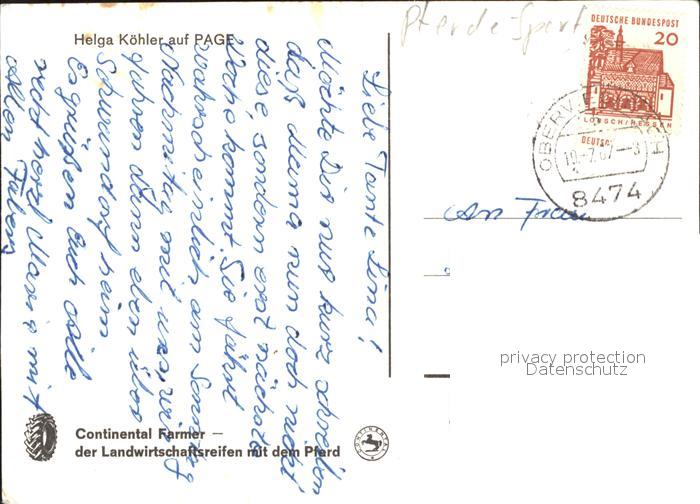 Helga Köhler auf PAGE
Pferde Sport
DEUTSCHE BUNDESPOST
20
LORSCH/HESSEN
OBERV
10.-7.67--8
8474
Liebe Tante Lina!
Möchte Dir nur kurz schreiben
daß Mama nun doch nicht
diese, sondern erst nächste
Woche kommt. Sie fährt
wahrscheinlich am Sonntag
Nachmittag mit uns, wir
fahren dann eben über
Schwandorf heim
Es grüßen Euch alle
recht herzl. Maria mit
allen Lieben
An Frau
privacy protection
Datenschutz
CONTINENTAL
Continental Farmer –
der Landwirtschaftsreifen mit dem Pferd